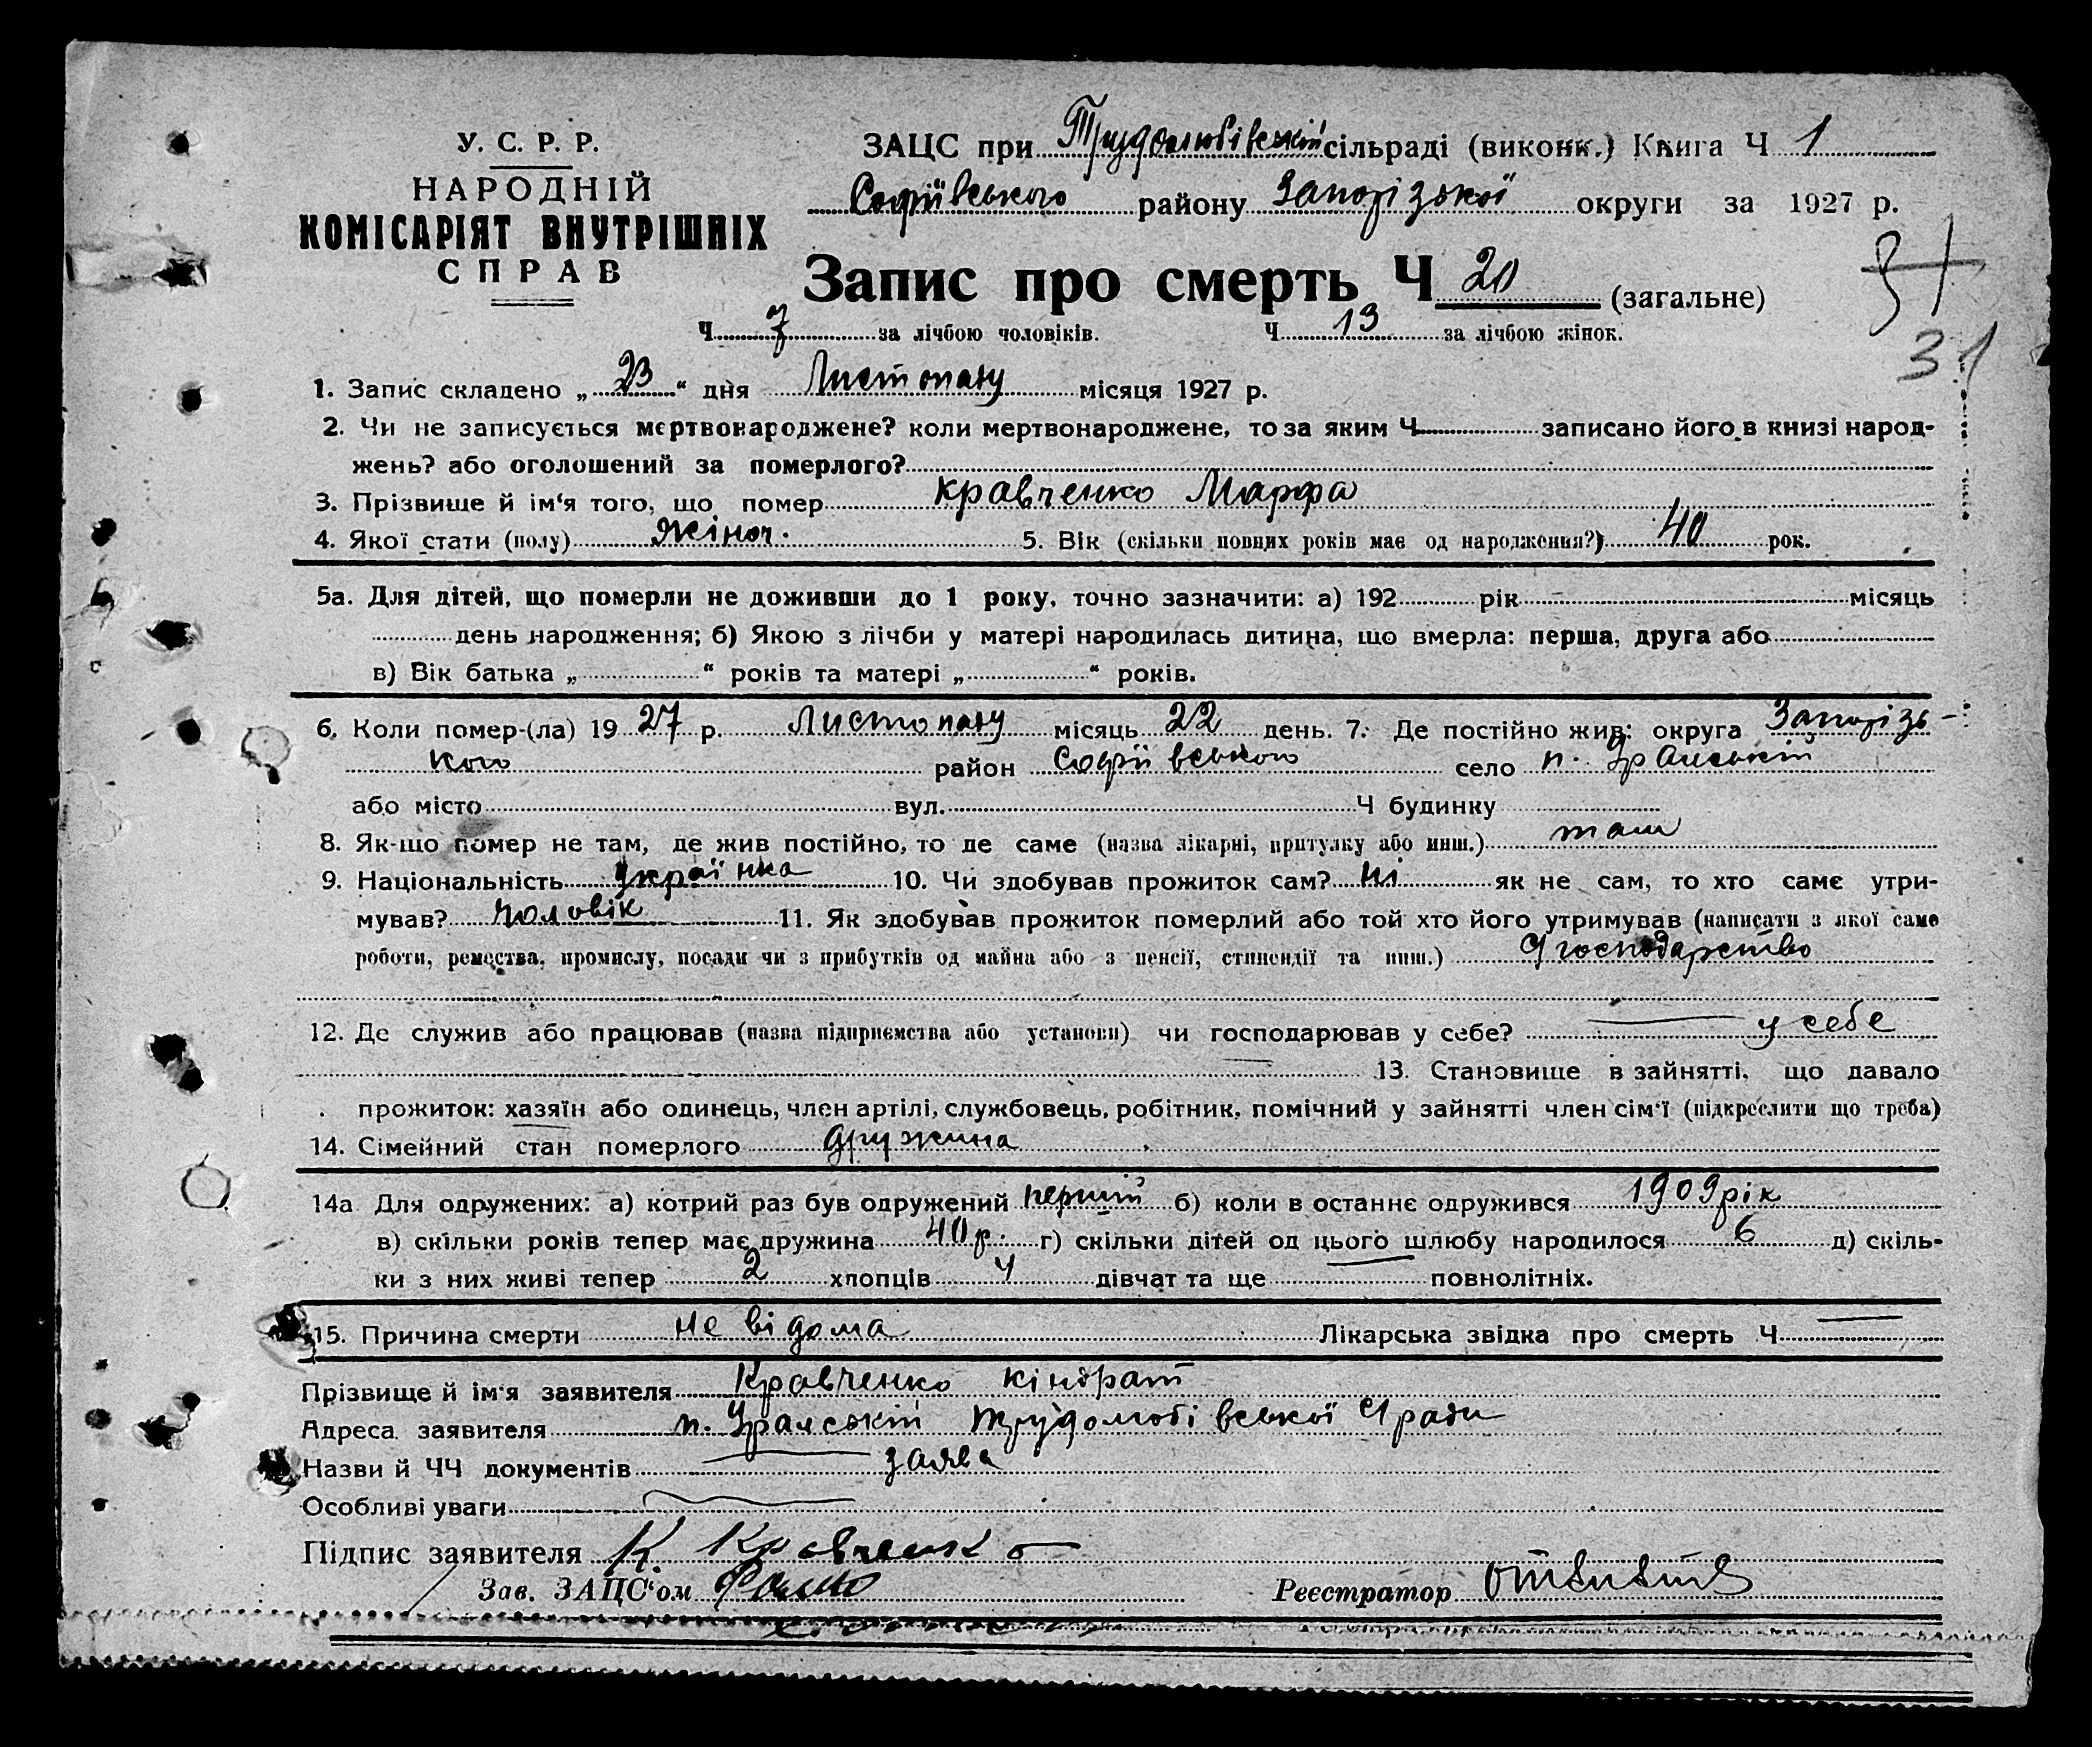 У. С. Р. Р.
НАРОДНІЙ
КОМІСАРІЯТ ВНУТРІШНІХ
СПРАВ
ЗАЦС при Трудолюбівській сільраді (виконк.) Книга Ч 1
Софіївського району Запорізької округи за 1927 р.
Запис про смерть Ч 20 (загальне)
31
Ч 7 за лічбою чоловіків. Ч 13 за лічбою жінок.
31
1. Запис складено „ 23 “ дня Листопаду місяця 1927 р.
2. Чи не записується мертвонароджене? коли мертвонароджене, то за яким Ч записано його в книзі народ-
жень? або оголошений за померлого?
3. Прізвище й ім‘я того, що помер Кравченко Марфа
4. Якої стати (полу) Жіноч. 5. Вік (скільки повних років має од народження?) 40 рок.
5а. Для дітей, що померли не доживши до 1 року, точно зазначити: а) 192 рік місяць
день народження; б) Якою з лічби у матері народилась дитина, що вмерла: перша, друга або
в) Вік батька „ “ років та матері „ “ років.
6. Коли помер-(ла) 19 27 р. Листопаду місяць 22 день. 7. Де постійно жив: округа Запорізь-
кого район Софіївського село п. Уральській
або місто вул. Ч будинку
8. Як-що помер не там, де жив постійно, то де саме (назва лікарні, притулку або инш.) там
9. Національність Українка 10. Чи здобував прожиток сам? ні як не сам, то хто саме утри-
мував? Чоловік 11. Як здобував прожиток померлий або той хто його утримував (написати з якої саме
роботи, ремества, промислу, посади чи з прибутків од майна або з пенсії, стипендії та инш.) господарство
12. Де служив або працював (назва підприємства або установи) чи господарював у себе? у себе
13. Становище в зайнятті, що давало
прожиток: хазяїн або одинець, член артілі, службовець, робітник, помічний у зайнятті член сім‘ї (підкреслити що треба)
14. Сімейний стан померлого дружина
14а Для одружених: а) котрий раз був одружений перший б) коли в останнє одружився 1909 рік
в) скільки років тепер має дружина 40 р. г) скільки дітей од цього шлюбу народилося 6 д) скіль-
ки з них живі тепер 2 хлопців 4 дівчат та ще повнолітніх.
15. Причина смерти не відома Лікарська звідка про смерть Ч
Прізвище й ім‘я заявителя Кравченко Кіндрат
Адреса заявителя п. Уральській Трудолюбівської С/ради
Назви й ЧЧ документів заява
Особливі уваги
Підпис заявителя К Кравченко
Зав. ЗАЦС‘ом
Реєстратор